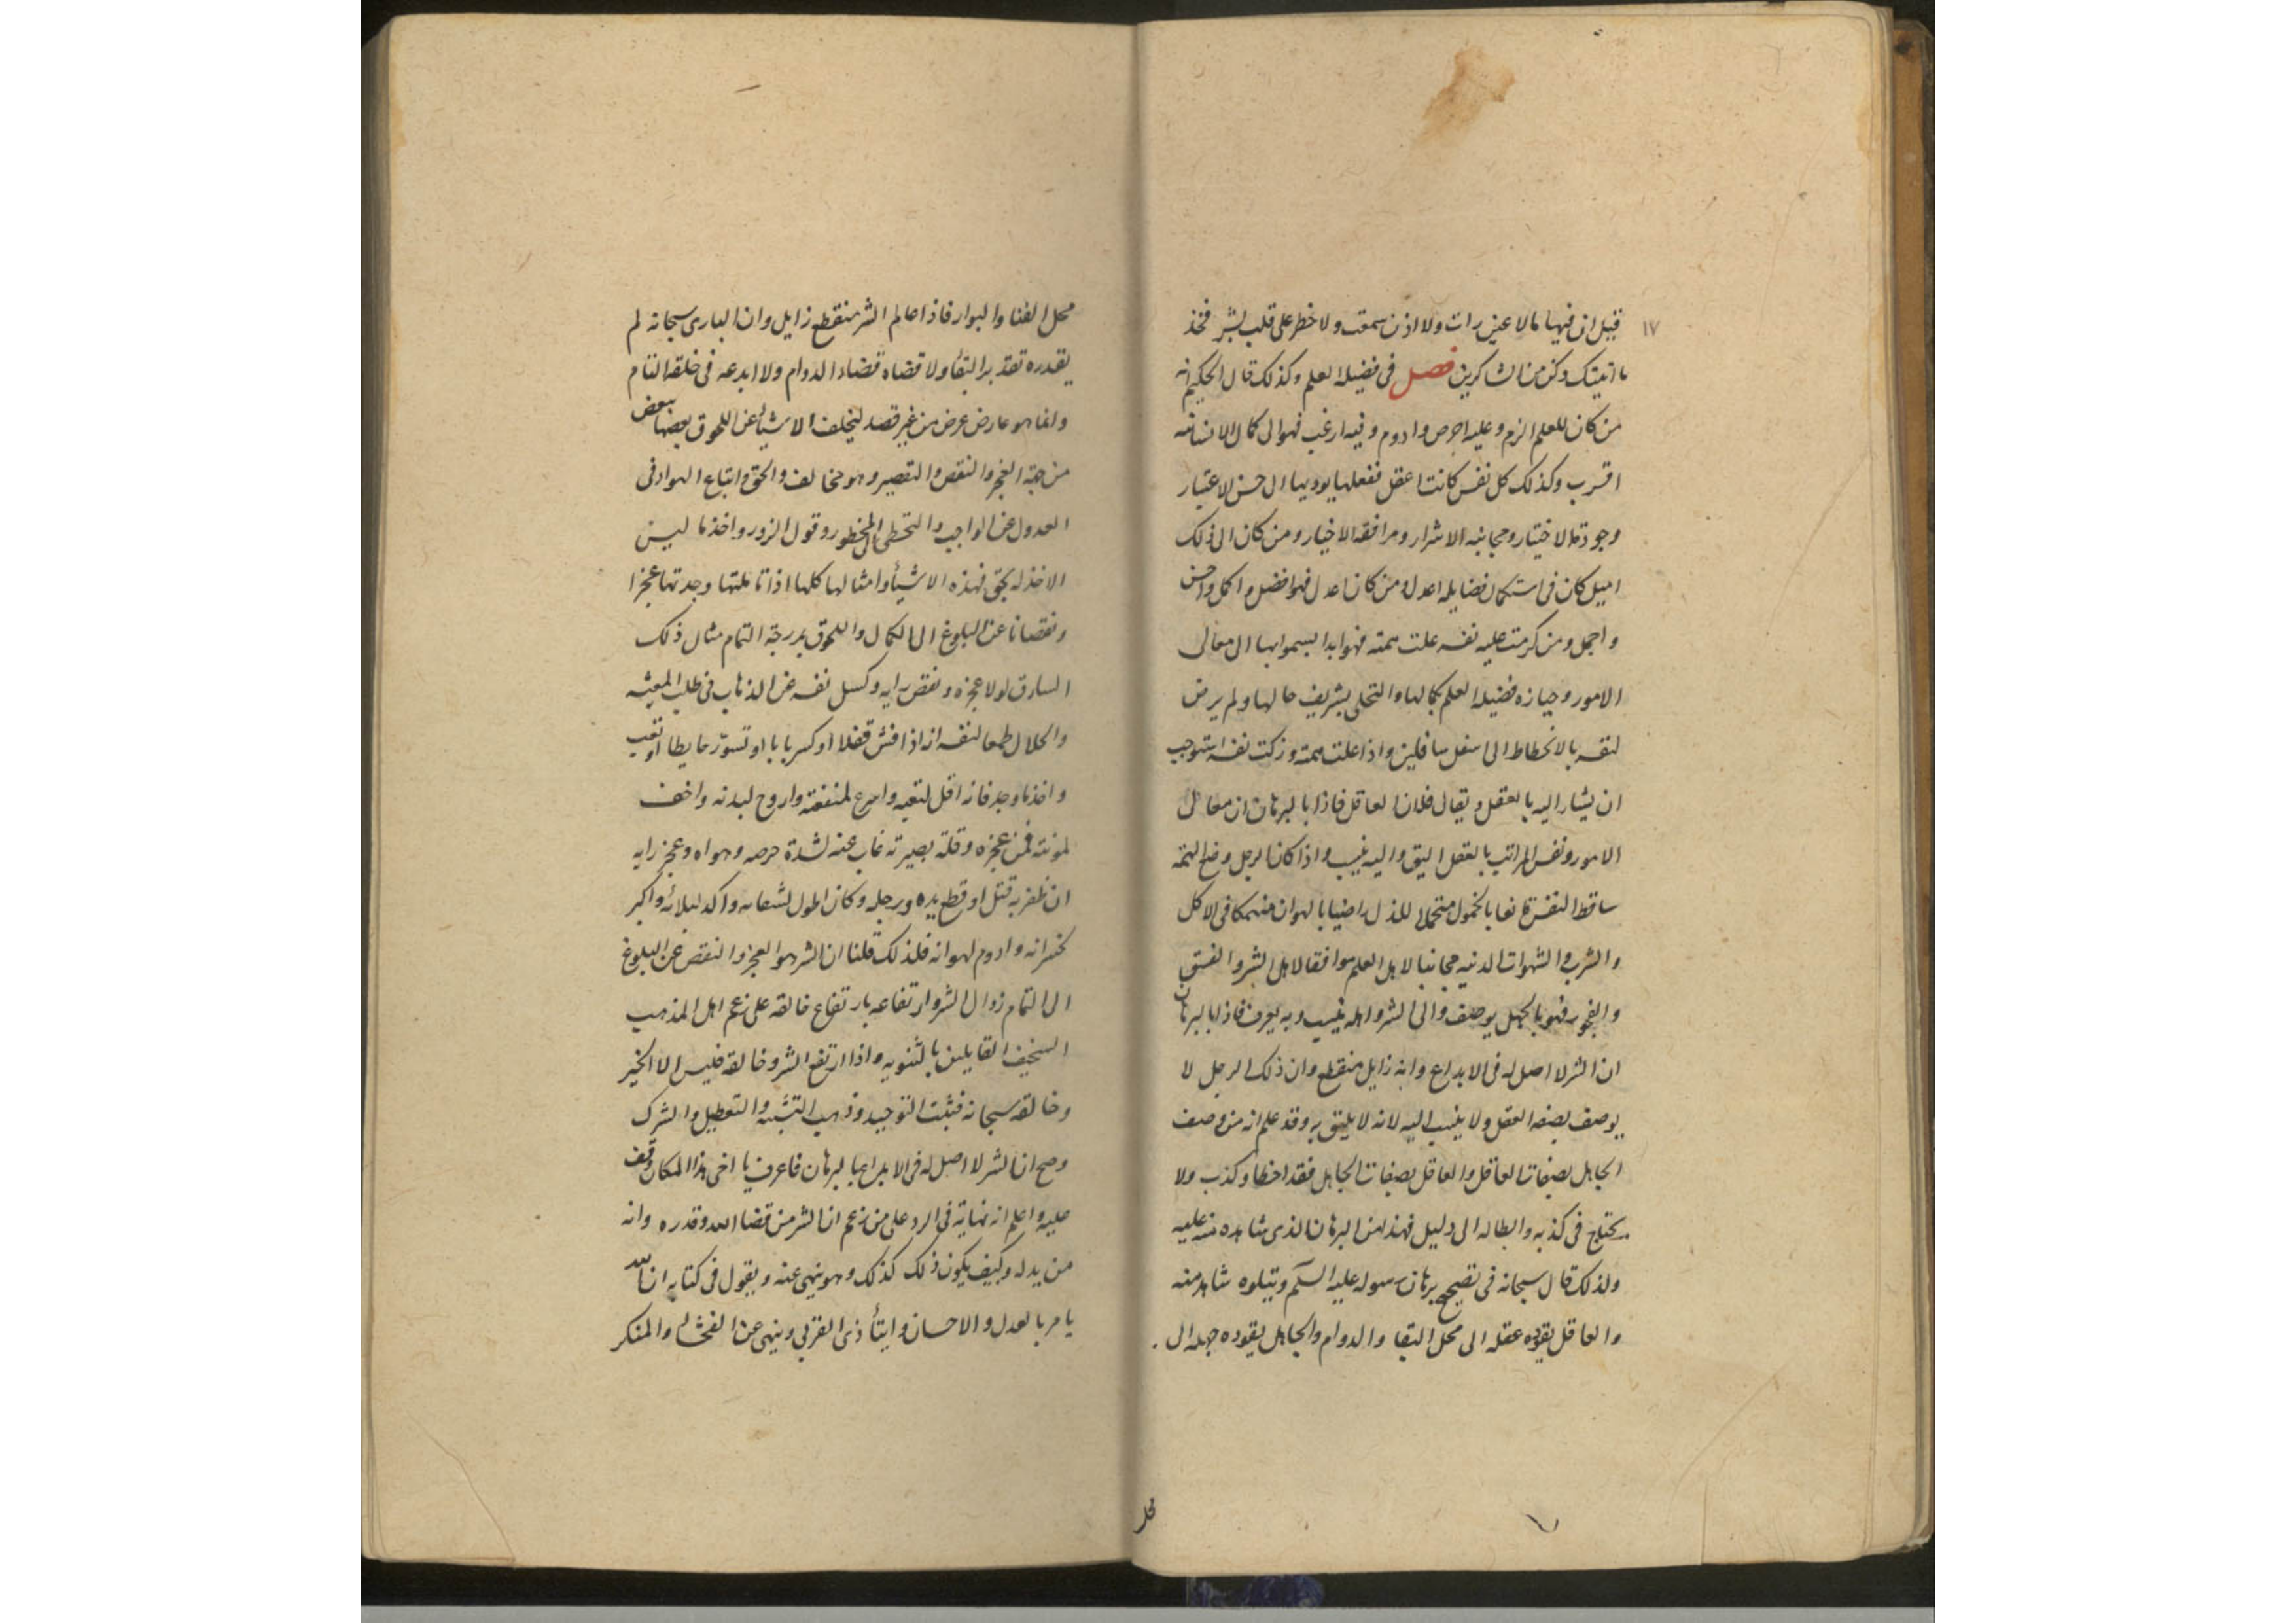 ١٧
قيل ان فيها ما لا عين رات ولا اذن سمعت ولا خطر على قلب بشر فخذ
ما اتيتك وكن من الشاكرين فصل في فضيله العلم وكذلك قال الحكيم انه
من كان للعلم الزم وعليه احرص وادوم وفيه ارغب فهو الى كمال الانسانيه
اقرب وكذلك كل نفس كانت اعقل ففعلها يوديها الى حسن الاعتبار
وجودة الاختيار ومجانبه الاشرار ومرافقه الاخيار ومن كان الى ذلك
اميل كان في استكمال فضايله اعدل ومن كان اعدل فهو افضل واكمل واحسن
واجمل ومن كرمت عليه نفسه علت همته فهو ابدا يسموا بها الى معالى
الامور وحيازه فضيله العلم بكمالها والتحلى بشريف حالها ولم يرض
لنفسه بالانحطاط الى اسفل سافلين واذا علت همته وزكت نفسه استوجب
ان يشار اليه بالعقل ويقال فلان العاقل فاذا بالبرهان ان معالى
الامور ونفس المراتب بالعقل اليق واليه ينسب واذا كان الرجل وضع الهمة
ساقط النفس قانعا بالخمول متحملا للذل راضيا بالهوان منهمكا في الاكل
والشرب والشهوات الدنيه مجانبا لاهل العلم موافقا لاهل الشر والفسق
والفجور فهو بالجهل يوصف والى الشر واهله ينسب وبه يعرف فاذا بالبرهان
ان الشر لا اصل له في الابداع وانه زايل منقطع وان ذلك الرجل لا
يوصف بصفه العقل ولا ينسب اليه لانه لا يليق به وقد علم انه من وصف
الجاهل بصفات العاقل والعاقل بصفات الجاهل فقد اخطا وكذب ولا
يحتاج في كذبه وابطاله الى دليل فهذا من البرهان الذى شاهده منه عليه
ولذلك قال سبحانه في تصحيح برهان رسوله عليه السلم ويتلوه شاهد منه
والعاقل يقوده عقله الى محل البقا والدوام والجاهل يقوده جهله الى
محل
محل الفنا والبوار فاذا عالم الشر منقطع زايل وان البارى سبحانه لم
يقدره تقدير البقا ولا قضاه قضاء الدوام ولا ابدعه في خلقه التام
وانما هو عارض عرض من غير قصد لتخلف الاشيا عن اللحوق بعضها ببعض
من جهة العجز والنقص والتقصير وهو مخالف والحق اتباع الهوا في
العدول عن الواجب والتخطى الى المحظور وقول الزور واخذ ما ليس
الاخذ له بحق فهذه الاشيأ وامثالها كلها اذا تاملتها وجدتها عجزا
ونقصانا عن البلوغ الى الكمال واللحوق بدرجة التمام مثال ذلك
السارق لولا عجزه ونقص رايه وكسل نفسه عن الذهاب في طلب المعيشه
والحلال طمعا لنفسه انه اذا فش قفلا او كسر بابا او تسور حايطا او نقب
واخذ ما وجد فانه اقل لتعبه واسرع لمنفعته واروح لبدنه واخف
لمونته فمن عجزه وقلة بصيرته غاب عنه لشدة حرصه وهواه وعجز رايه
ان ظفر به قتل او قطع يده ورجله وكان اطول لشقائه واكد لبلائه واكبر
لخسرانه وادوم لهوانه فلذلك قلنا ان الشر هو العجز والنقص عن البلوغ
الى التمام زوال الشر وارتفاعه بارتفاع خالقه على زعم اهل المذهب
السخيف القايلين بالثنويه واذا ارتفع الشر وخالقه فليس الا الخير
وخالقه سبحانه فثبت التوحيد وذهب التشبه والتعطيل والشرك
وصح ان الشر لا اصل له في الابداع بالبرهان فاعرف يا اخى هذا المكان وقف
عليه واعلم انه نهاية في الرد على من زعم ان الشر من قضا الله وقدره وانه
من يدله وكيف يكون ذلك كذلك وهو ينهى عنه ويقول في كتابه ان الله
يامر بالعدل والاحسان وايتأ ذى القربى وينهى عن الفحشا والمنكر